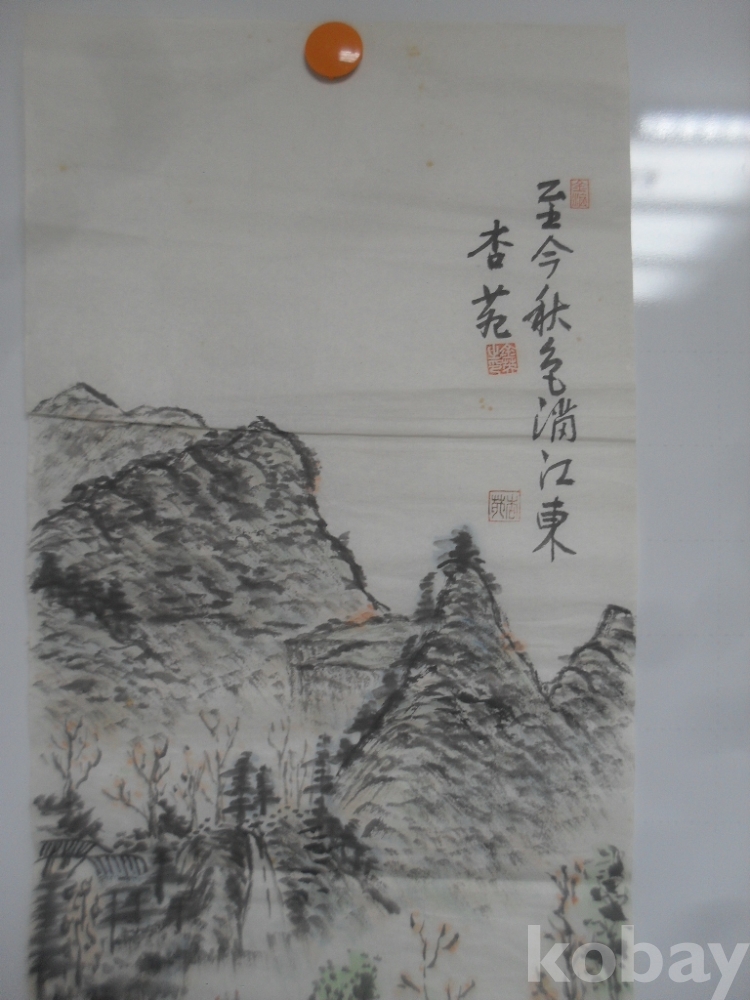 至今秋色滿江東
杏苑
kobay